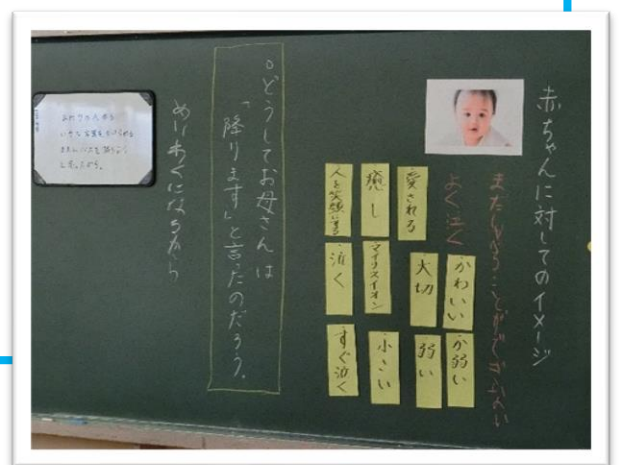 赤ちゃんに対してのイメージ
まだしゃべることができない
よく泣く
かわいい
か弱い
大切
弱い
愛される
マイナスイオン
小さい
癒し
泣く
すぐ泣く
人を笑顔に
。どうしてお母さんは
「降ります」と言ったのだろう。
めいわくになるから